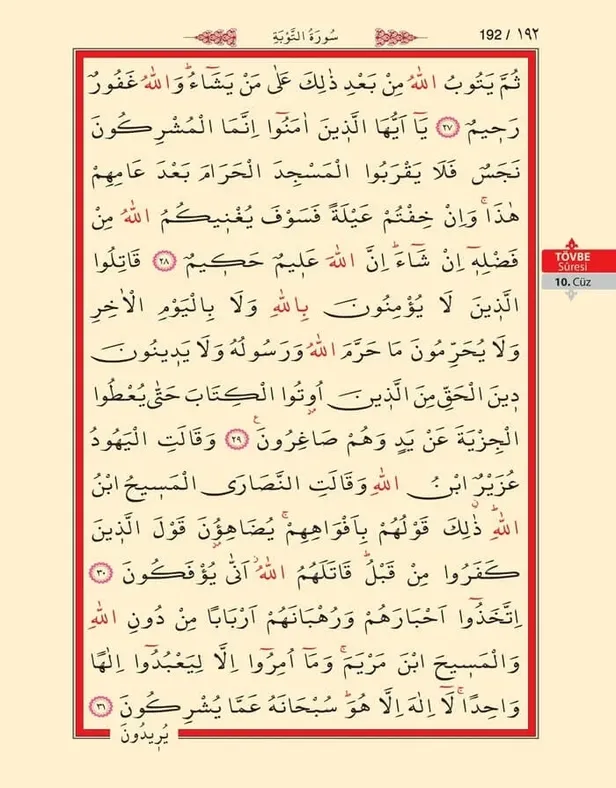 192 / ١٩٢
سُورَةُ التَّوْبَةِ
ثُمَّ يَتُوبُ اللّٰهُ مِنْ بَعْدِ ذٰلِكَ عَلٰى مَنْ يَشَٓاءُۜ وَاللّٰهُ غَفُورٌ
رَح۪يمٌ ﴿٢٧﴾ يَٓا اَيُّهَا الَّذ۪ينَ اٰمَنُٓوا اِنَّمَا الْمُشْرِكُونَ
نَجَسٌ فَلَا يَقْرَبُوا الْمَسْجِدَ الْحَرَامَ بَعْدَ عَامِهِمْ
هٰذَاۚ وَاِنْ خِفْتُمْ عَيْلَةً فَسَوْفَ يُغْن۪يكُمُ اللّٰهُ مِنْ
فَضْلِه۪ٓ اِنْ شَٓاءَۜ اِنَّ اللّٰهَ عَل۪يمٌ حَك۪يمٌ ﴿٢٨﴾ قَاتِلُوا
الَّذ۪ينَ لَا يُؤْمِنُونَ بِاللّٰهِ وَلَا بِالْيَوْمِ الْاٰخِرِ
وَلَا يُحَرِّمُونَ مَا حَرَّمَ اللّٰهُ وَرَسُولُهُ وَلَا يَد۪ينُونَ
د۪ينَ الْحَقِّ مِنَ الَّذ۪ينَ اُو۫تُوا الْكِتَابَ حَتّٰى يُعْطُوا
الْجِزْيَةَ عَنْ يَدٍ وَهُمْ صَاغِرُونَ۟ ﴿٢٩﴾ وَقَالَتِ الْيَهُودُ
عُزَيْرٌ ابْنُ اللّٰهِ وَقَالَتِ النَّصَارَى الْمَس۪يحُ ابْنُ
اللّٰهِۜ ذٰلِكَ قَوْلُهُمْ بِاَفْوَاهِهِمْۚ يُضَاهِؤُ۫نَ قَوْلَ الَّذ۪ينَ
كَفَرُوا مِنْ قَبْلُۜ قَاتَلَهُمُ اللّٰهُۘ اَنّٰى يُؤْفَكُونَ ﴿٣٠﴾
اِتَّخَذُٓوا اَحْبَارَهُمْ وَرُهْبَانَهُمْ اَرْبَابًا مِنْ دُونِ اللّٰهِ
وَالْمَس۪يحَ ابْنَ مَرْيَمَۚ وَمَٓا اُمِرُٓوا اِلَّا لِيَعْبُدُٓوا اِلٰهًا
وَاحِدًاۚ لَٓا اِلٰهَ اِلَّا هُوَۜ سُبْحَانَهُ عَمَّا يُشْرِكُونَ ﴿٣١﴾
يُر۪يدُونَ
TÖVBE
Sûresi
10. Cüz